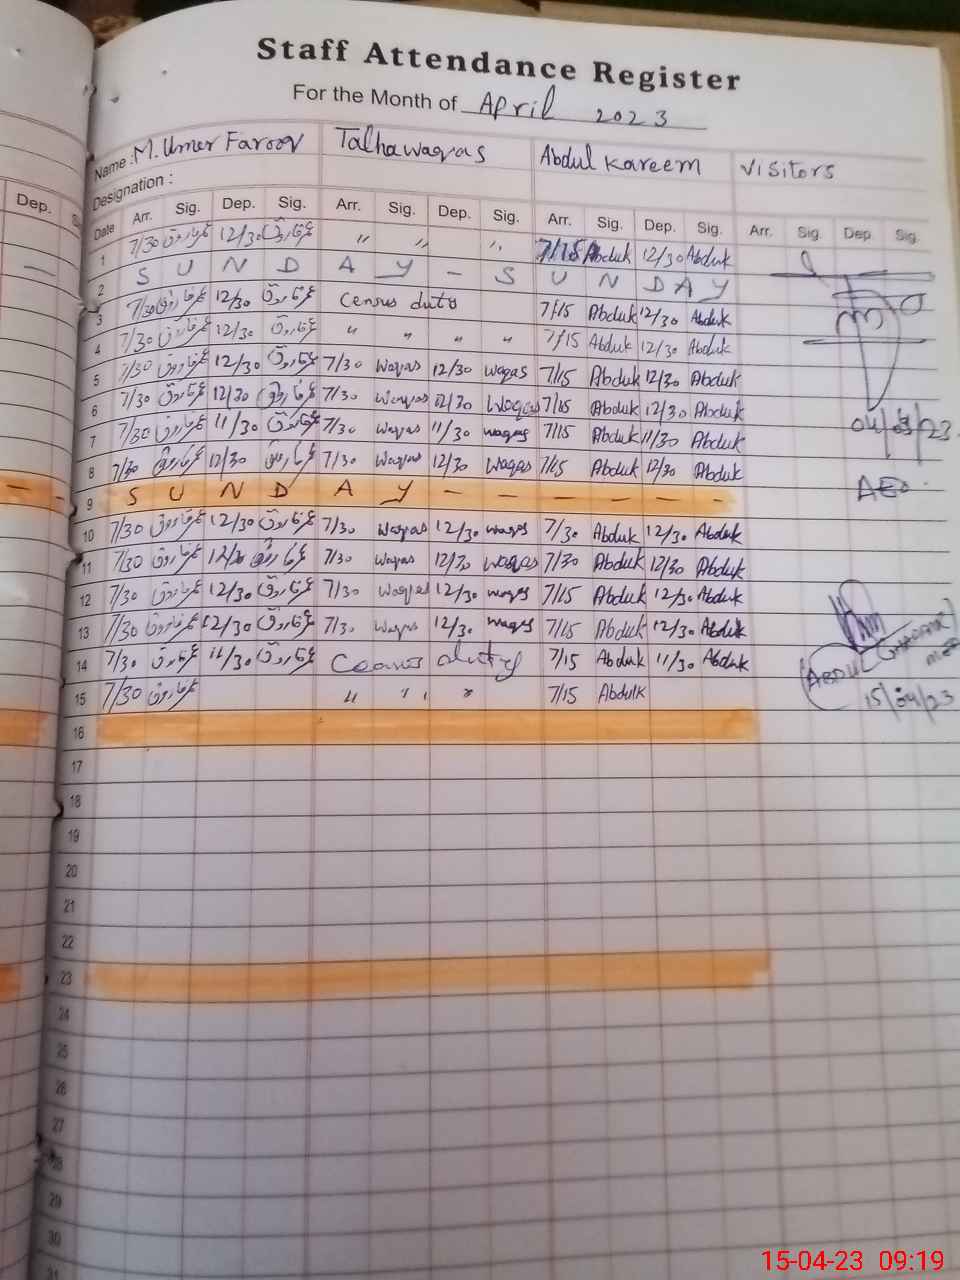 Staff Attendance Register
For the Month of April 2023
Name : M. Umer Farooq Talhawaqas Abdul Kareem Visitors
Designation :
Dep.
Date Arr. Sig. Dep. Sig. Arr. Sig. Dep. Sig. Arr. Sig. Dep. Sig. Arr. Sig. Dep. Sig.
1 7/30 عمرفاروق 12/30 عمرفاروق " " " 7/15 Abduk 12/30 Abduk
2 S U N D A Y - S U N D A Y
3 7/30 عمرفاروق 12/30 عمرفاروق Census duty 7/15 Abduk 12/30 Abduk
4 7/30 عمرفاروق 12/30 عمرفاروق " " " " 7/15 Abduk 12/30 Abduk
5 7/30 عمرفاروق 12/30 عمرفاروق 7/30 Waqas 12/30 Waqas 7/15 Abduk 12/30 Abduk
6 7/30 عمرفاروق 12/30 عمرفاروق 7/30 Waqas 12/30 Waqas 7/15 Abduk 12/30 Abduk
7 7/30 عمرفاروق 11/30 عمرفاروق 7/30 Waqas 11/30 Waqas 7/15 Abduk 11/30 Abduk
04/ /23
8 7/30 عمرفاروق 12/30 عمرفاروق 7/30 Waqas 12/30 Waqas 7/15 Abduk 12/30 Abduk
AEO
9 S U N D A Y - - - - - - -
10 7/30 عمرفاروق 12/30 عمرفاروق 7/30 Waqas 12/30 Waqas 7/30 Abduk 12/30 Abduk
11 7/30 عمرفاروق 12/30 عمرفاروق 7/30 Waqas 12/30 Waqas 7/30 Abduk 12/30 Abduk
12 7/30 عمرفاروق 12/30 عمرفاروق 7/30 Waqas 12/30 Waqas 7/15 Abduk 12/30 Abduk
13 7/30 عمرفاروق 12/30 عمرفاروق 7/30 Waqas 12/30 Waqas 7/15 Abduk 12/30 Abduk
14 7/30 عمرفاروق 11/30 عمرفاروق Census duty 7/15 Abduk 11/30 Abduk
ABDUL
15 7/30 عمرفاروق " " " " 7/15 Abdulk
15/04/23
16
17
18
19
20
21
22
23
24
25
26
27
28
29
30
31
15-04-23 09:19